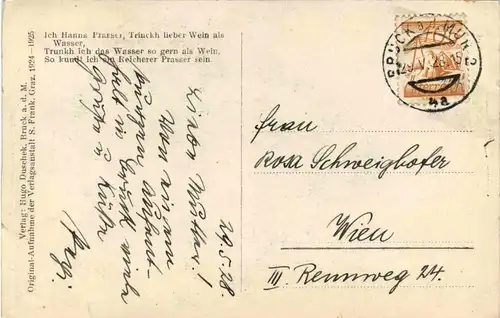 Ich Hanns Prasser, Trinckh lieber Wein als
Wasser,
Trunkh Ich das Wasser so gern als Wein,
So kundt Ich ein Reicherer Prasser sein.
Verlag: Hugo Duschek, Bruck a. d. M.
Original-Aufnahme der Verlagsanstalt S. Frank, Graz. 1924 — 1925
BRUCK a.d. MUR 2
29.V.28.15
4a
29.5.28.
Mutter!
Von einem
kurzen
in Bruck
Grüße & Küße
Frau
Rosa Schweighofer
Wien
III. Rennweg 24.